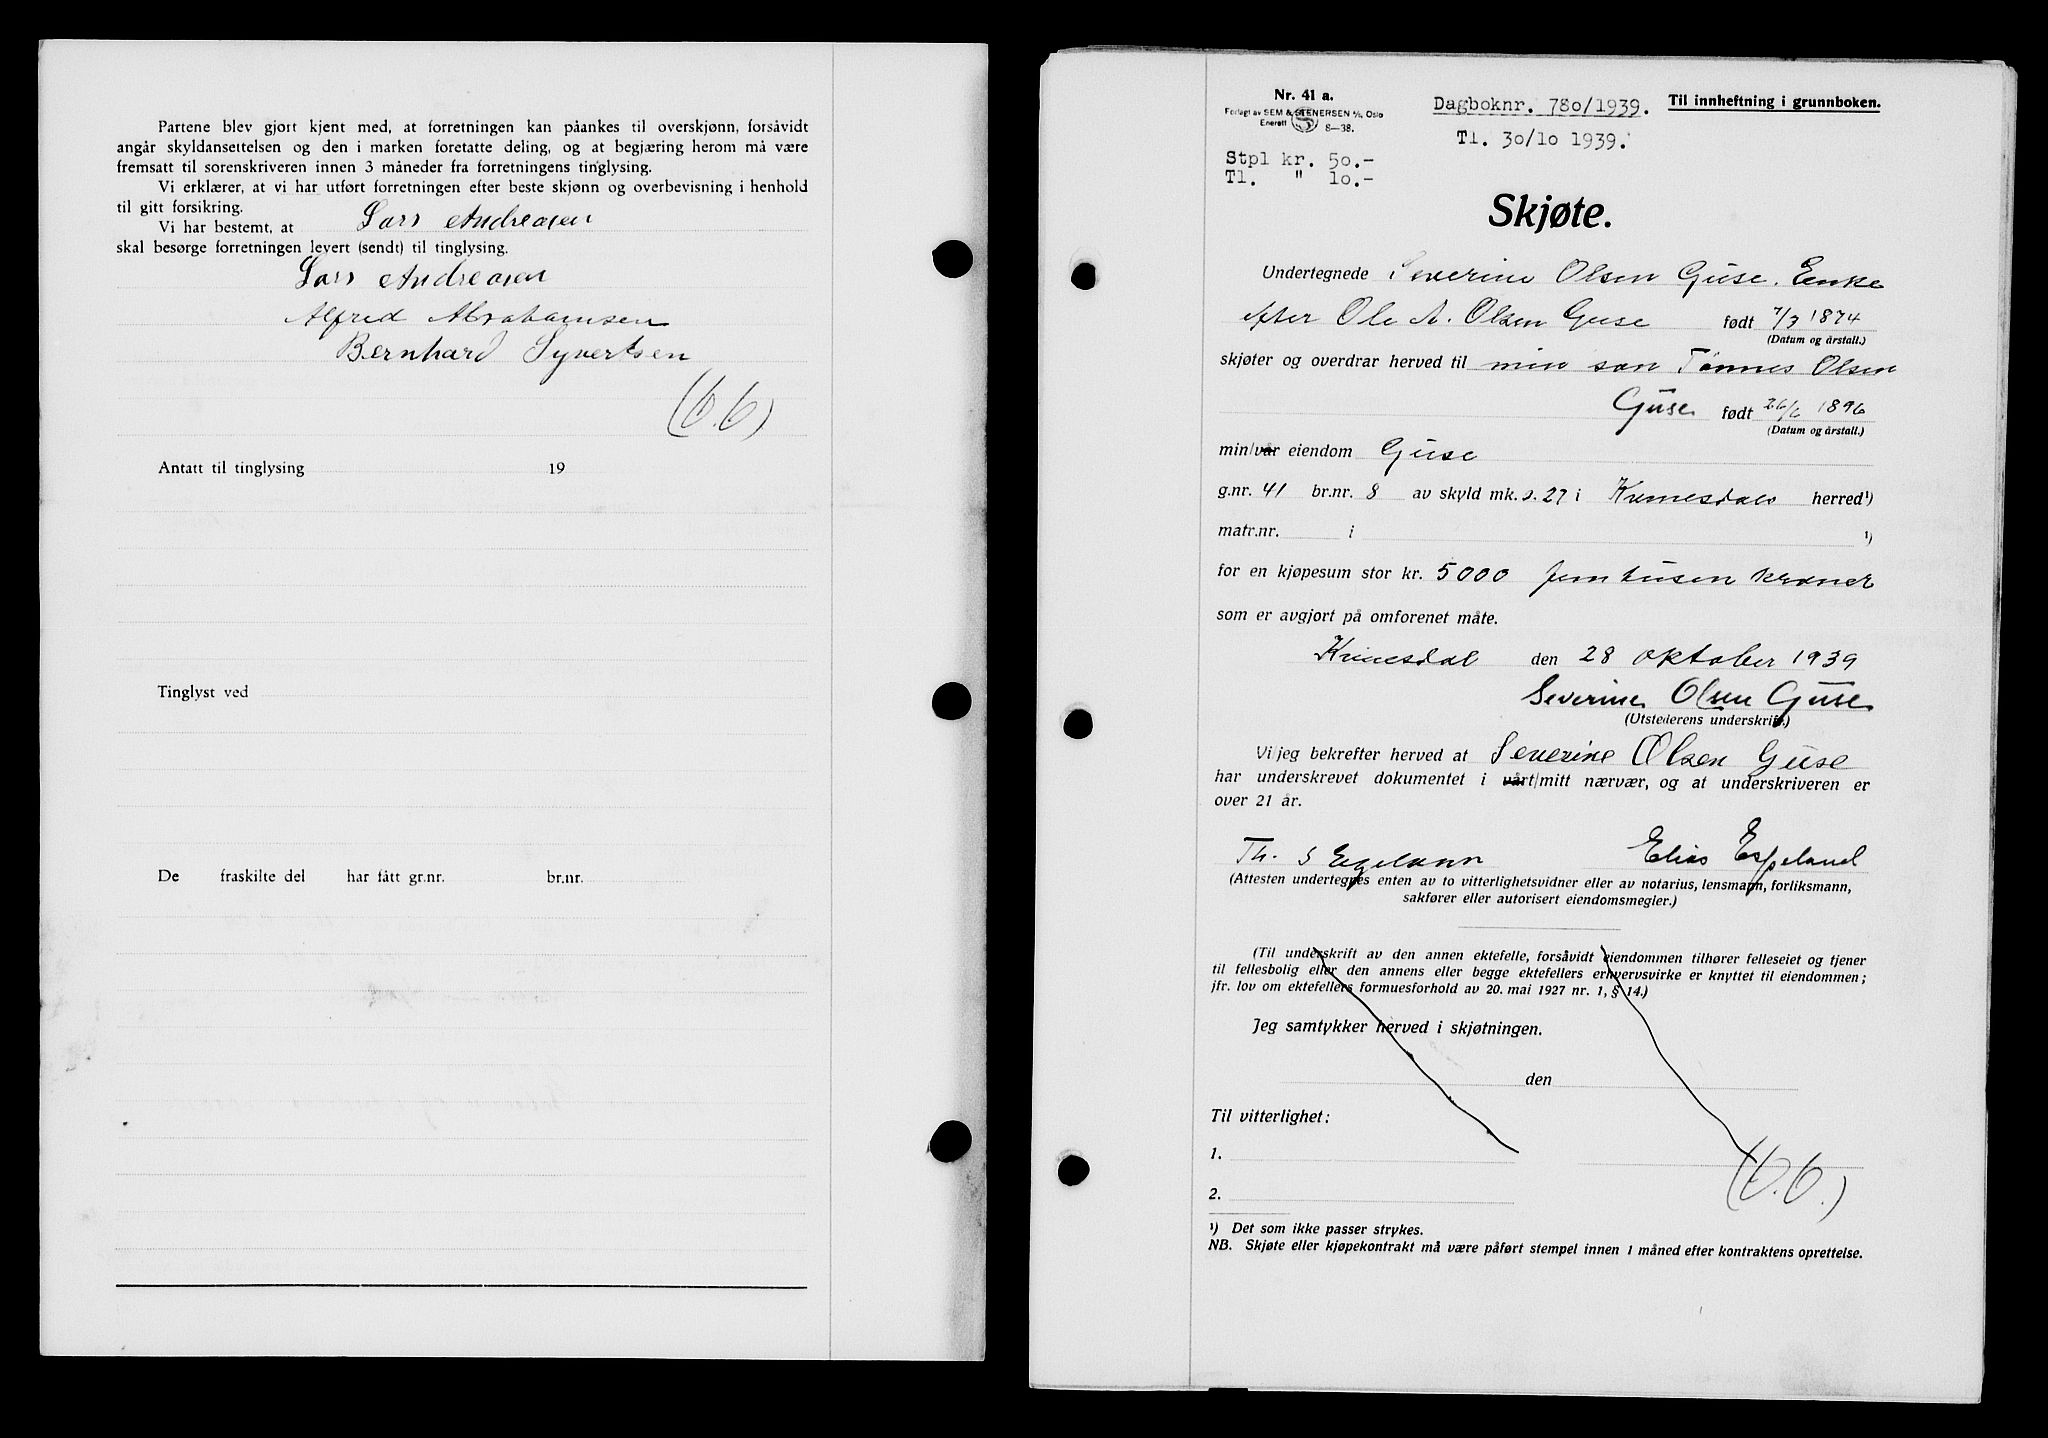 Partene blev gjort kjent med, at forretningen kan påankes til overskjønn, forsåvidt
angår skyldansettelsen og den i marken foretatte deling, og at begjæring herom må være
fremsatt til sorenskriveren innen 3 måneder fra forretningens tinglysing.
Vi erklærer, at vi har utført forretningen efter beste skjønn og overbevisning i henhold
til gitt forsikring.
Vi har bestemt, at Lars Andreasen
skal besørge forretningen levert (sendt) til tinglysing.
Lars Andreasen
Alfred Abrahamsen
Bernhard Syvertsen
Antatt til tinglysing 19
Tinglyst ved
De fraskilte del har fått gr.nr. br.nr.
Nr. 41 a.
Forlagt av SEM & STENERSEN A/S, Oslo
Enerett 8—38.
Dagboknr. 780/1939.
Til innheftning i grunnboken.
Tl. 30/10 1939.
Stpl kr. 50.-
Tl. " 10.-
Skjøte.
Undertegnede Severine Olsen Guse. Enke
efter Ole A. Olsen Guse født 7/3 1874
(Datum og årstall.)
skjøter og overdrar herved til min søn Tønnes Olsen
Guse født 26/6 1896
(Datum og årstall.)
min/vår eiendom Guse
g.nr. 41 br.nr. 8 av skyld mk. 0.27 i Kvinesdal herred¹)
matr.nr. i ¹)
for en kjøpesum stor kr. 5000 fem tusen kroner
som er avgjort på omforenet måte.
Kvinesdal den 28 oktober 1939
Severine Olsen Guse
(Utstederens underskrift.)
Vi/jeg bekrefter herved at Severine Olsen Guse
har underskrevet dokumentet i vårt/mitt nærvær, og at underskriveren er
over 21 år.
Th. S Egeland Elias Espeland
(Attesten undertegnes enten av to vitterlighetsvidner eller av notarius, lensmann, forliksmann,
sakfører eller autorisert eiendomsmegler.)
(Til underskrift av den annen ektefelle, forsåvidt eiendommen tilhører felleseiet og tjener
til fellesbolig eller den annens eller begge ektefellers erhvervsvirke er knyttet til eiendommen;
jfr. lov om ektefellers formuesforhold av 20. mai 1927 nr. 1, § 14.)
Jeg samtykker herved i skjøtningen.
den
Til vitterlighet:
1.
2.
¹) Det som ikke passer strykes.
NB. Skjøte eller kjøpekontrakt må være påført stempel innen 1 måned efter kontraktens oprettelse.